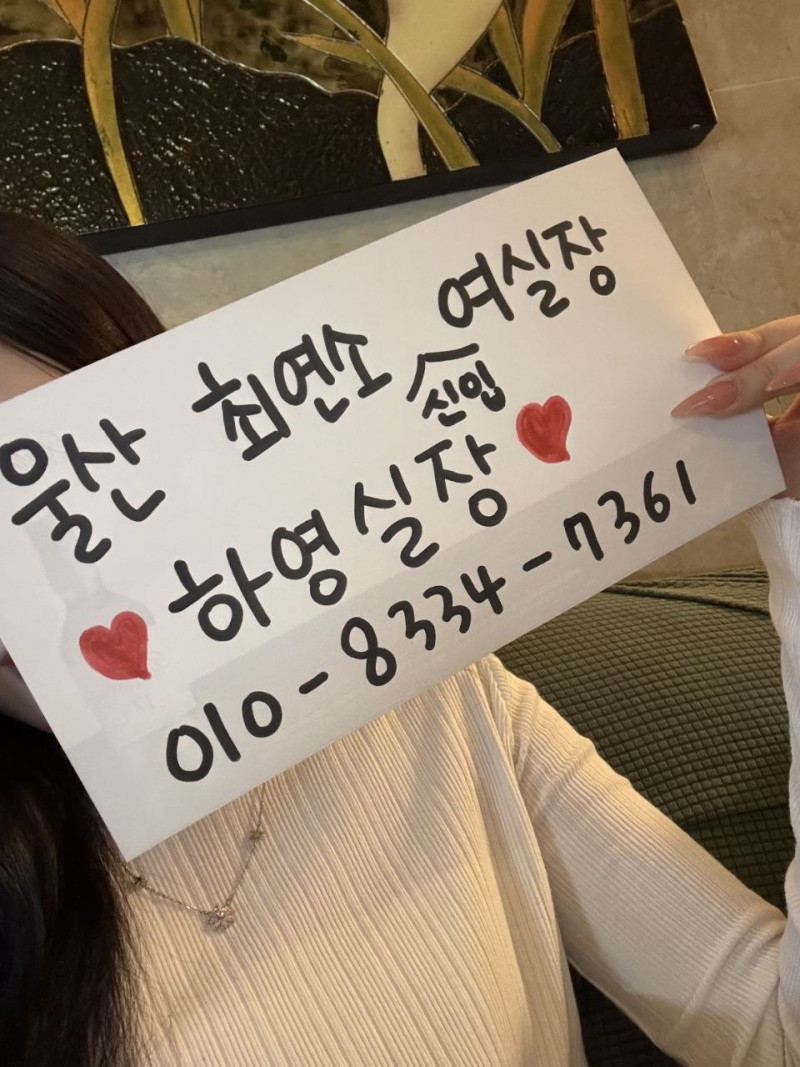 울산 최연소 여실장
신입
하영실장
010-8334-7361